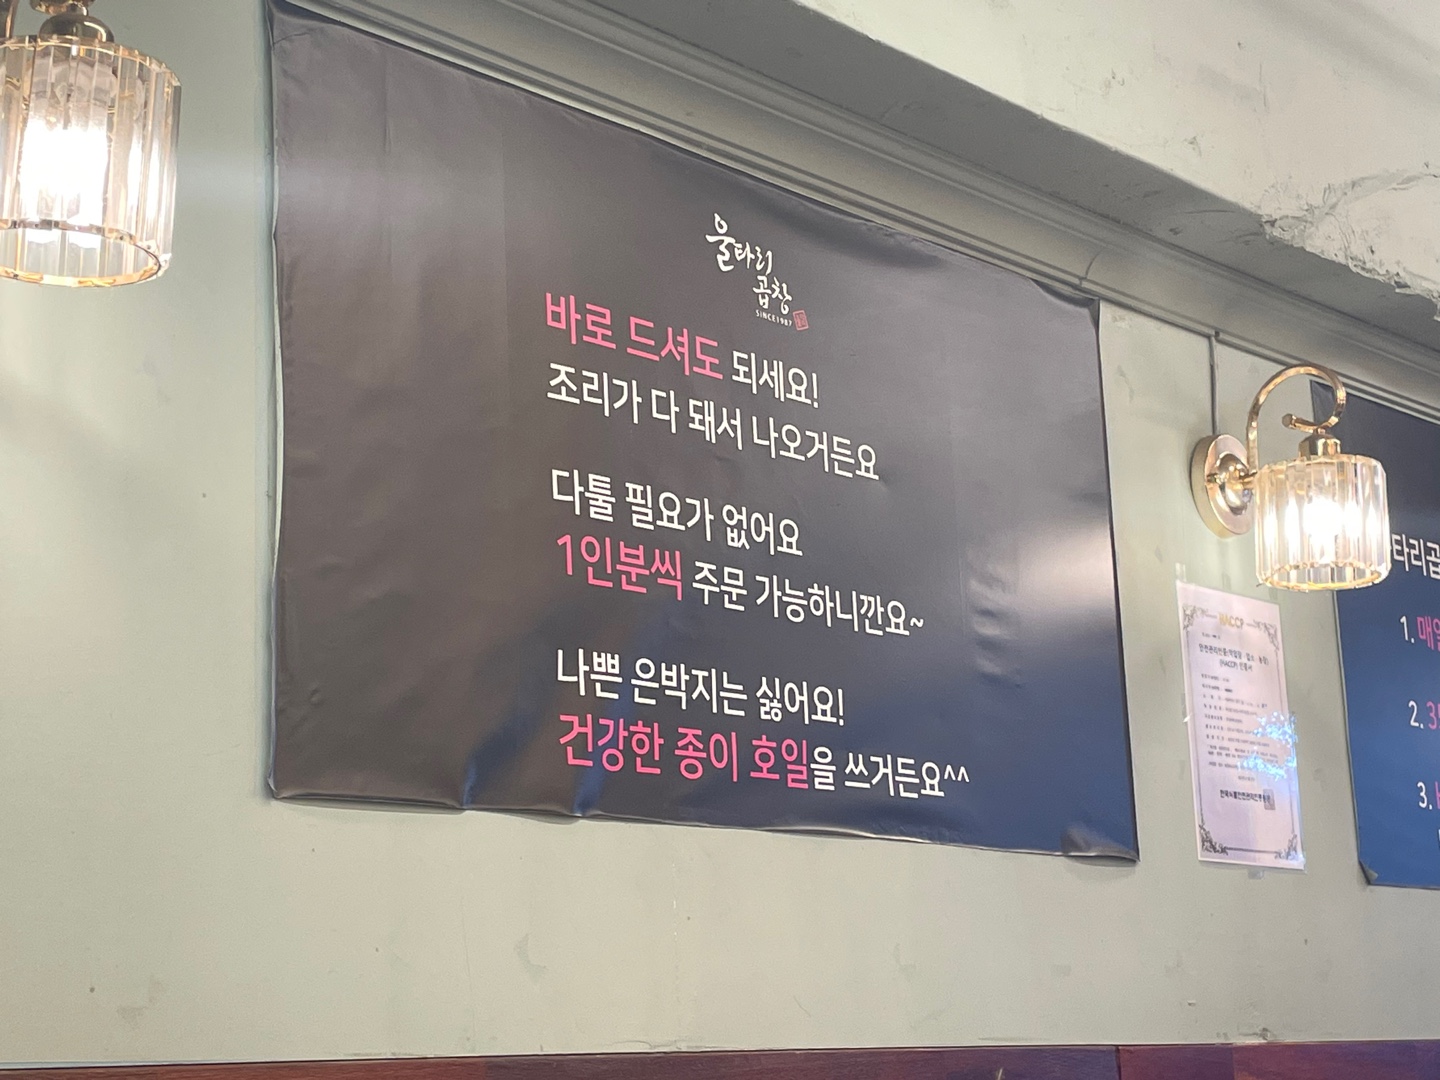 울타리
곱창
SINCE1987
바로 드셔도 되세요!
조리가 다 돼서 나오거든요
다툴 필요가 없어요
1인분씩 주문 가능하니깐요~
나쁜 은박지는 싫어요!
건강한 종이 호일을 쓰거든요^^
HACCP
(HACCP) 인증서
타리곱
1. 매일
2. 3
3.